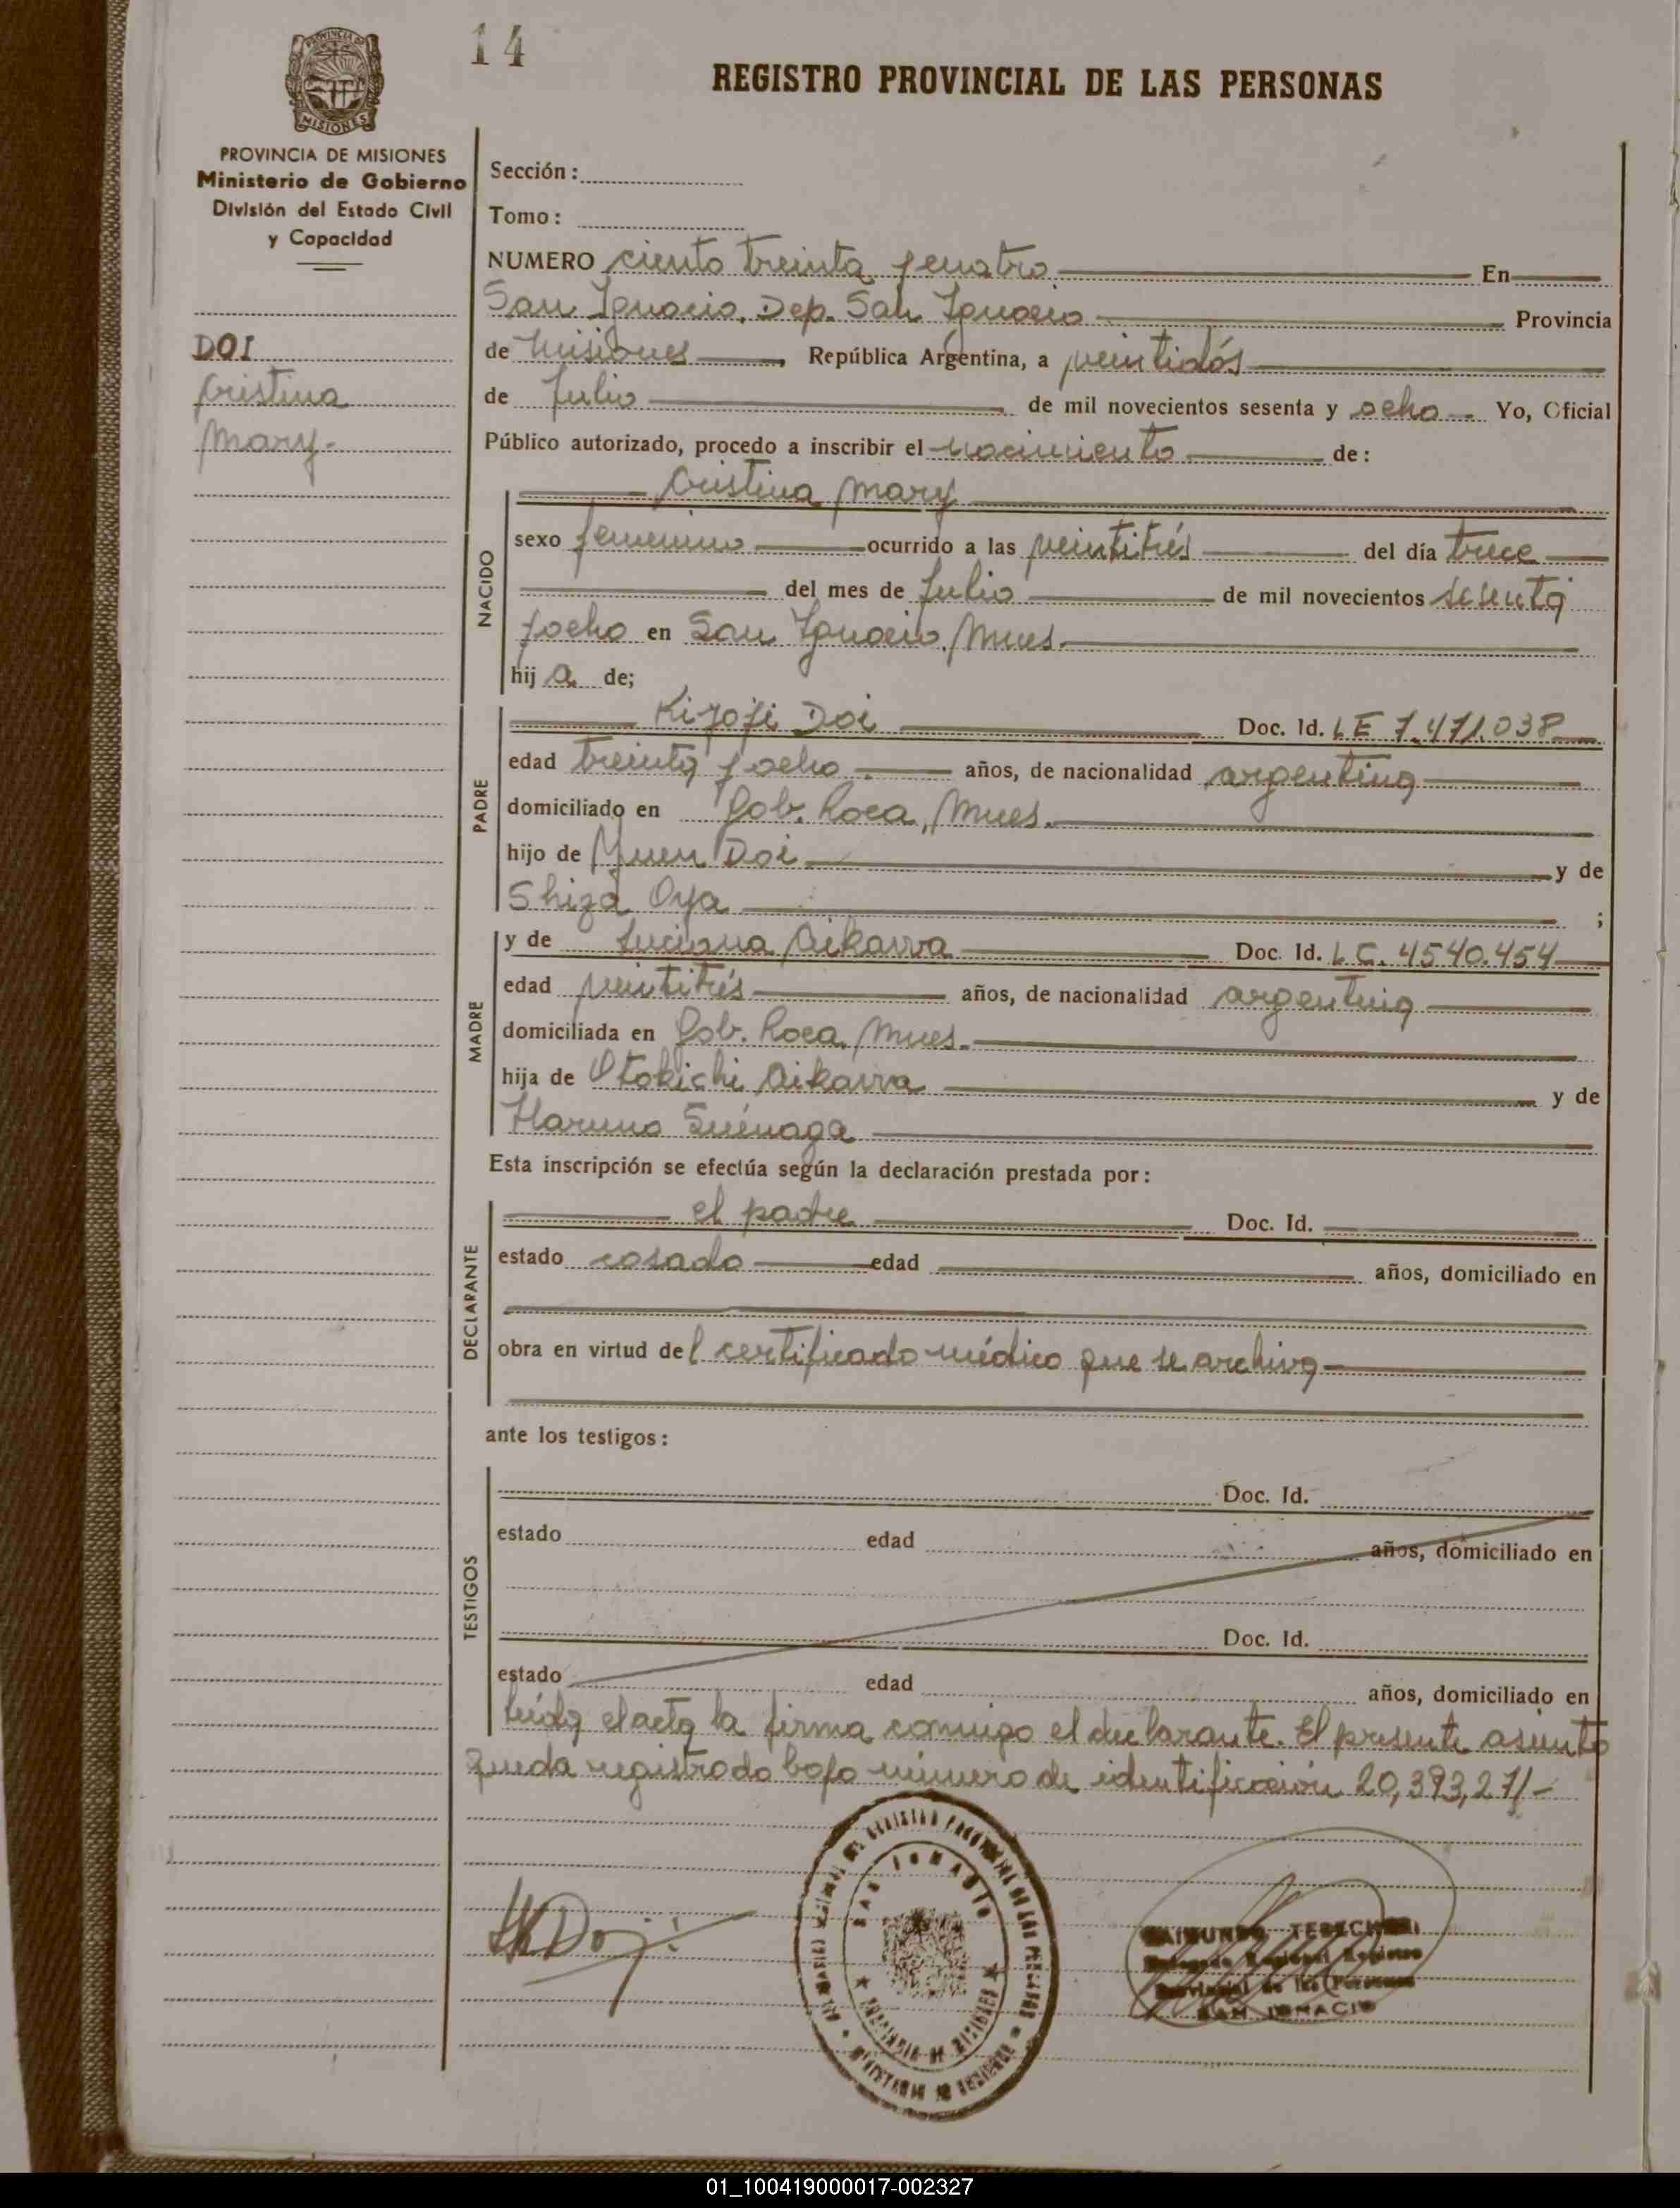 14
REGISTRO PROVINCIAL DE LAS PERSONAS
PROVINCIA DE MISIONES
Ministerio de Gobierno
División del Estado Civil
y Capacidad
DOI
Cristina
Mary-
Sección:
Tomo:
NUMERO ciento treinta y cuatro En
San Ignacio, Dep. San Ignacio Provincia
de Misiones, República Argentina, a veintidós
de Julio de mil novecientos sesenta y ocho Yo, Oficial
Público autorizado, procedo a inscribir el nacimiento de:
Cristina Mary
NACIDO
sexo femenino ocurrido a las veintitrés del día trece
del mes de Julio de mil novecientos sesenta
y ocho en San Ignacio, Mnes.
hija de;
PADRE
Kiyoji Doi Doc. Id. LE 7.471.038
edad treinta y ocho años, de nacionalidad argentina
domiciliado en Gob. Roca, Mnes.
hijo de Doi y de
Oya ;
MADRE
y de Luciana Aikawa Doc. Id. L.C. 4540.454
edad veintitrés años, de nacionalidad argentina
domiciliada en Gob. Roca, Mnes.
hija de Otokichi Aikawa y de
Haruno Suenaga
Esta inscripción se efectúa según la declaración prestada por:
DECLARANTE
el padre Doc. Id.
estado casado edad años, domiciliado en
obra en virtud del certificado médico que se archiva
ante los testigos:
TESTIGOS
Doc. Id.
estado edad años, domiciliado en
Doc. Id.
estado edad años, domiciliado en
Leída el acta la firma conmigo el declarante. El presente asiento
queda registrado bajo número de identificación 20,393,271-
SAN IGNACIO
PROVINCIA DE MISIONES
TEBECHERI
Delegado Regional Registro
Provincial de las Personas
SAN IGNACIO
01_100419000017-002327